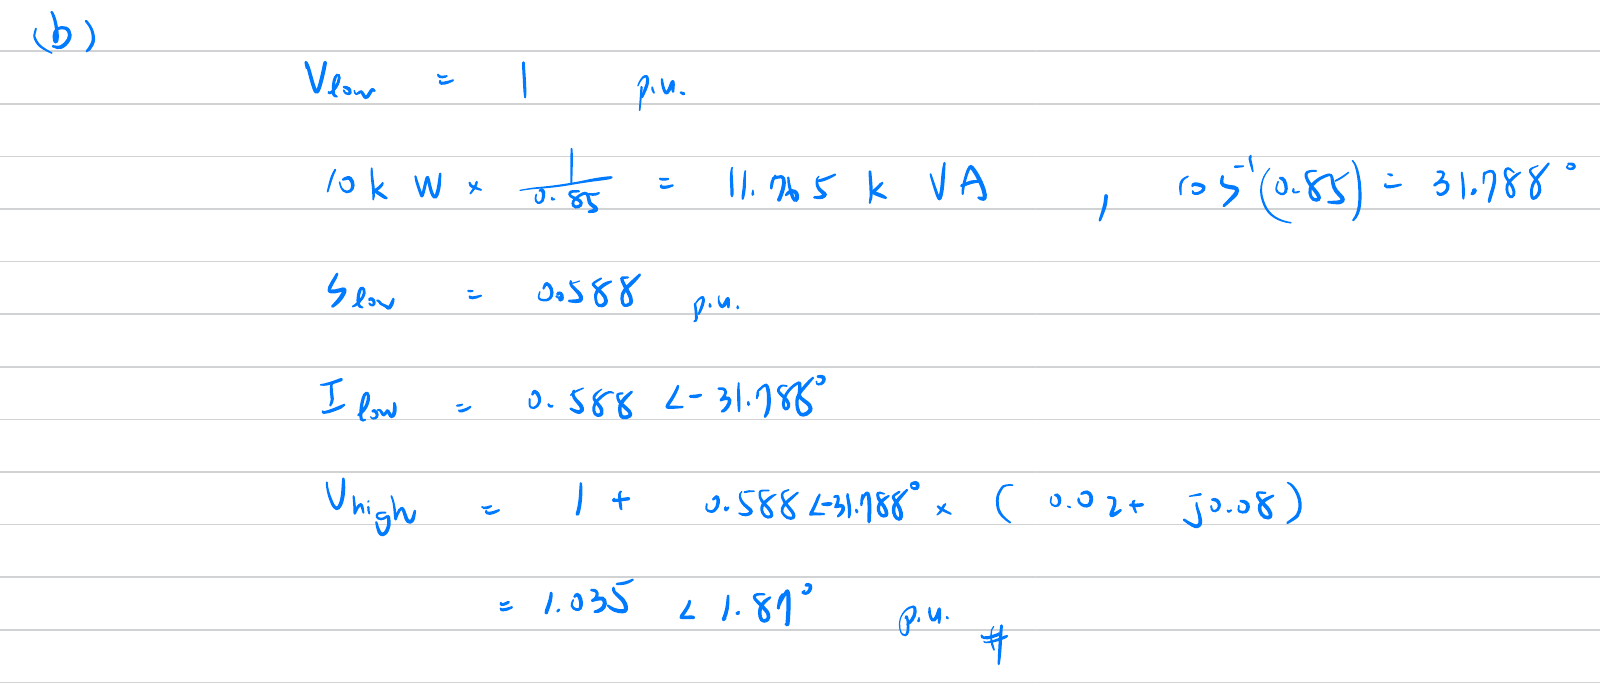 (b)
V_low = 1 p.u.
10k W × 1/0.85 = 11.765 k VA , cos⁻¹(0.85) = 31.788°
S_low = 0.588 p.u.
I_low = 0.588 ∠-31.788°
V_high = 1 + 0.588∠-31.788° × (0.02+ j0.08)
= 1.035 ∠ 1.87° p.u. #